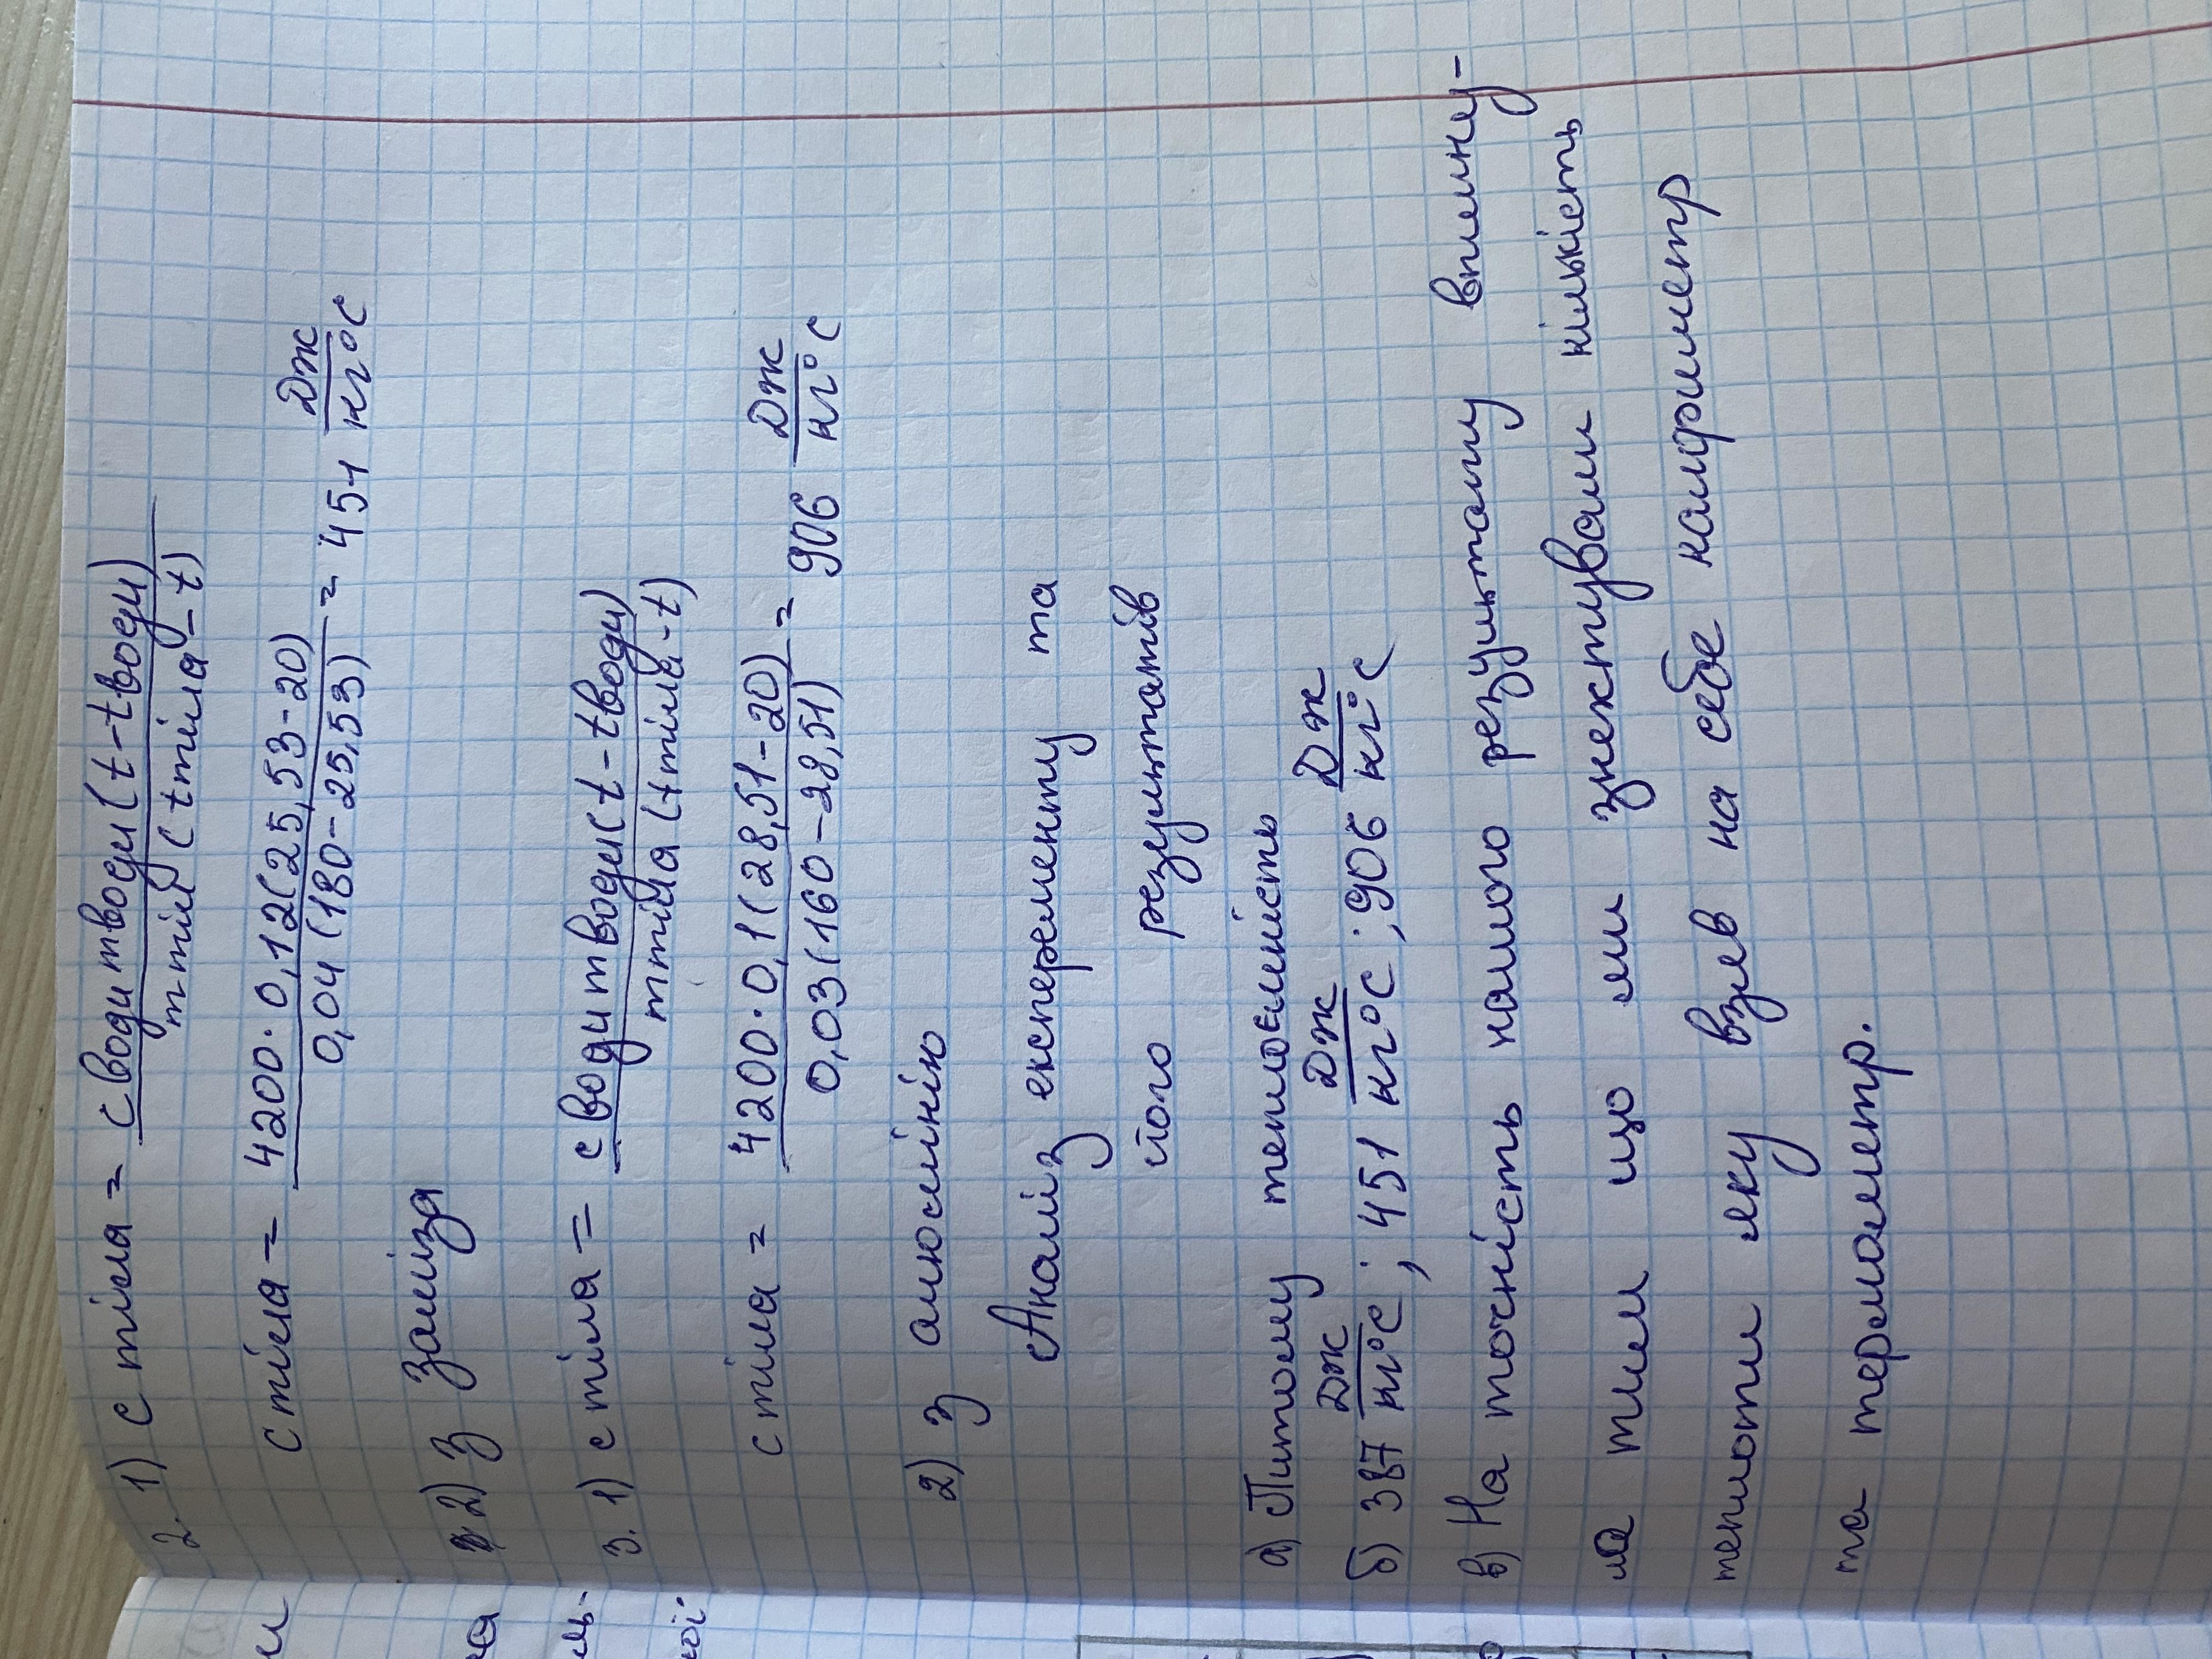 2. 1) c тіла = c води m води (t - t води) / m тіл (t тіла - t)
c тіла = 4200 · 0,12 (25,53 - 20) / 0,04 (180 - 25,53) = 451 Дж / кг°С
2) З заліза
3. 1) c тіла = c води m води (t - t води) / m тіла (t тіла - t)
c тіла = 4200 · 0,1 (28,51 - 20) / 0,03 (160 - 28,51) = 906 Дж / кг°С
2) З алюмінію
Аналіз експеременту та
його результатів
а) Питому теплоємність
б) 387 Дж / кг°С ; 451 Дж / кг°С ; 906 Дж / кг°С
в) На точність нашого результату вплину-
ла тим що ми знектували кількість
теплоти яку взяв на себе калориметр
та термометр.